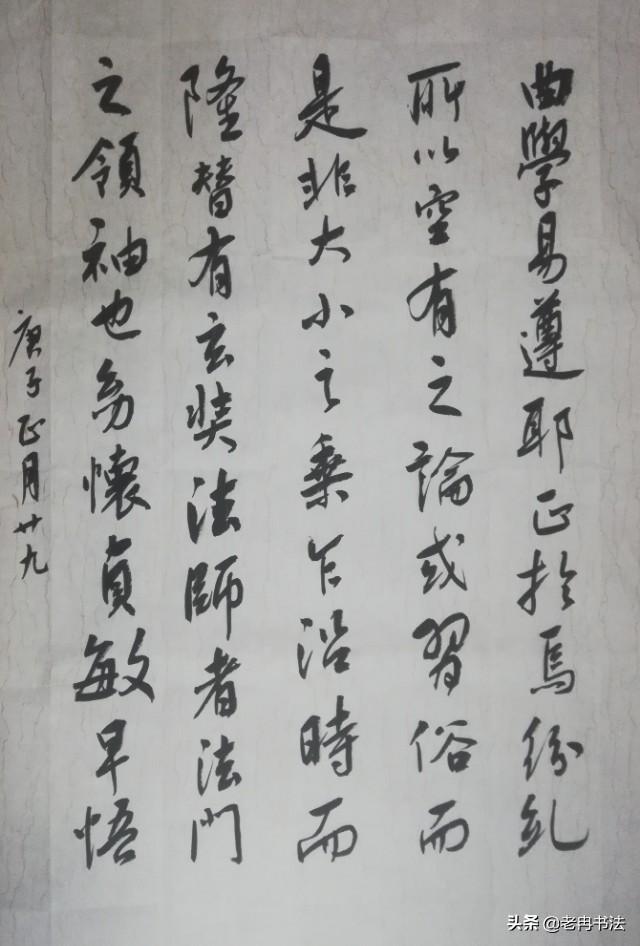 曲學易遵耶正於焉紛糺
所以空有之論或習俗而
是非大小之乘乍沿時而
隆替有玄奘法師者法門
之領袖也幼懷貞敏早悟
庚子正月廿九
头条@老冉书法